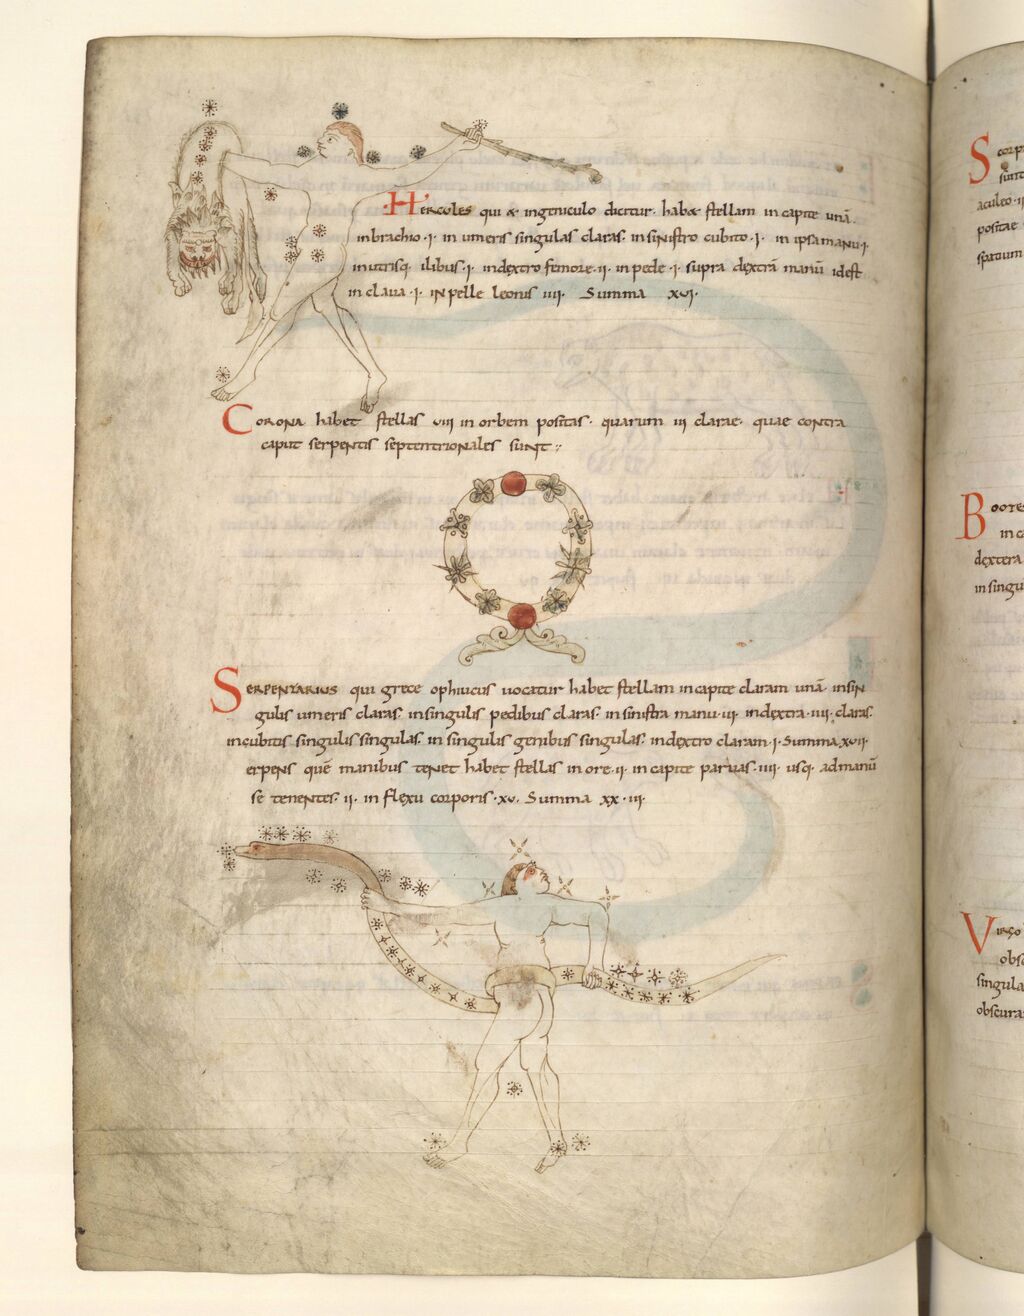 Hercoles qui & ingeniculo dicitur · hab& stellam incapite unā ·
inbrachio · i · in umeris singulas claras · insinistro cubito · i · in ipsamanu · i ·
inutrisq; ilibus · i · indextro femore · ii · inpede · i · supra dextrā manū idest
in clava · i · inpelle leonis iiii · Summa xvi ·
Corona habet stellas viii in orbem positas · quarum iii clarae · quae contra
caput serpentis septentrionales sunt :
Serpentarius qui grece ophiucus uocatur habet stellam incapite claram unā · insin
gulis umeris claras · insingulis pedibus claras · in sinistra manu · iii · indextra · iiii · claras ·
incubitis singulis singulas · in singulis genibus singulas · indextro claram · i · Summa xvii ·
erpens quē manibus tenet habet stellas in ore · ii · in capite paruas · iiii · usq; admanū
se tenentes · ii · in flexu corporis · xv · Summa xx · iii ·
Scorp
sunt
aculeo · ii
positae
spatium
Bootes
in ca
dextera
insingu
Virgo
obsc
singula
obscura